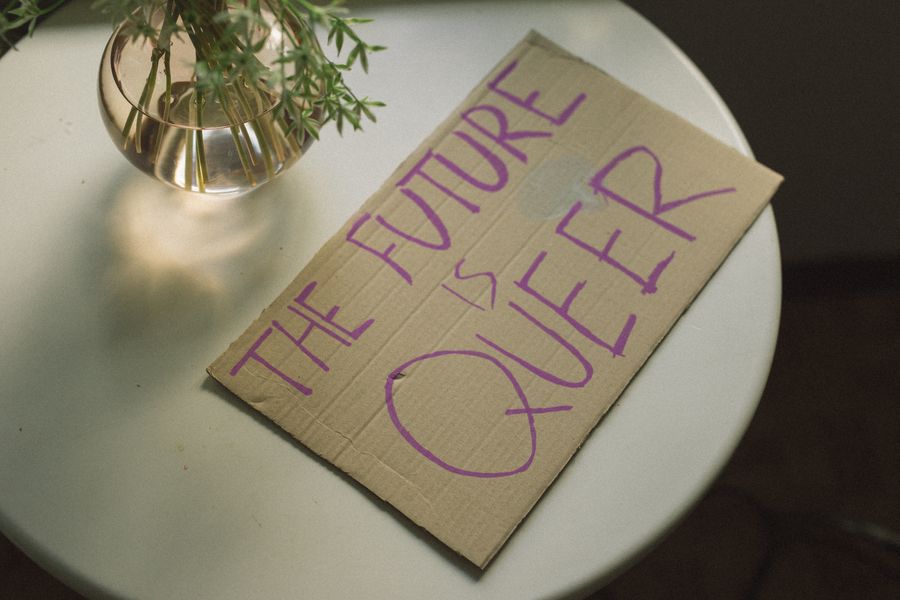 THE FUTURE
IS
QUEER